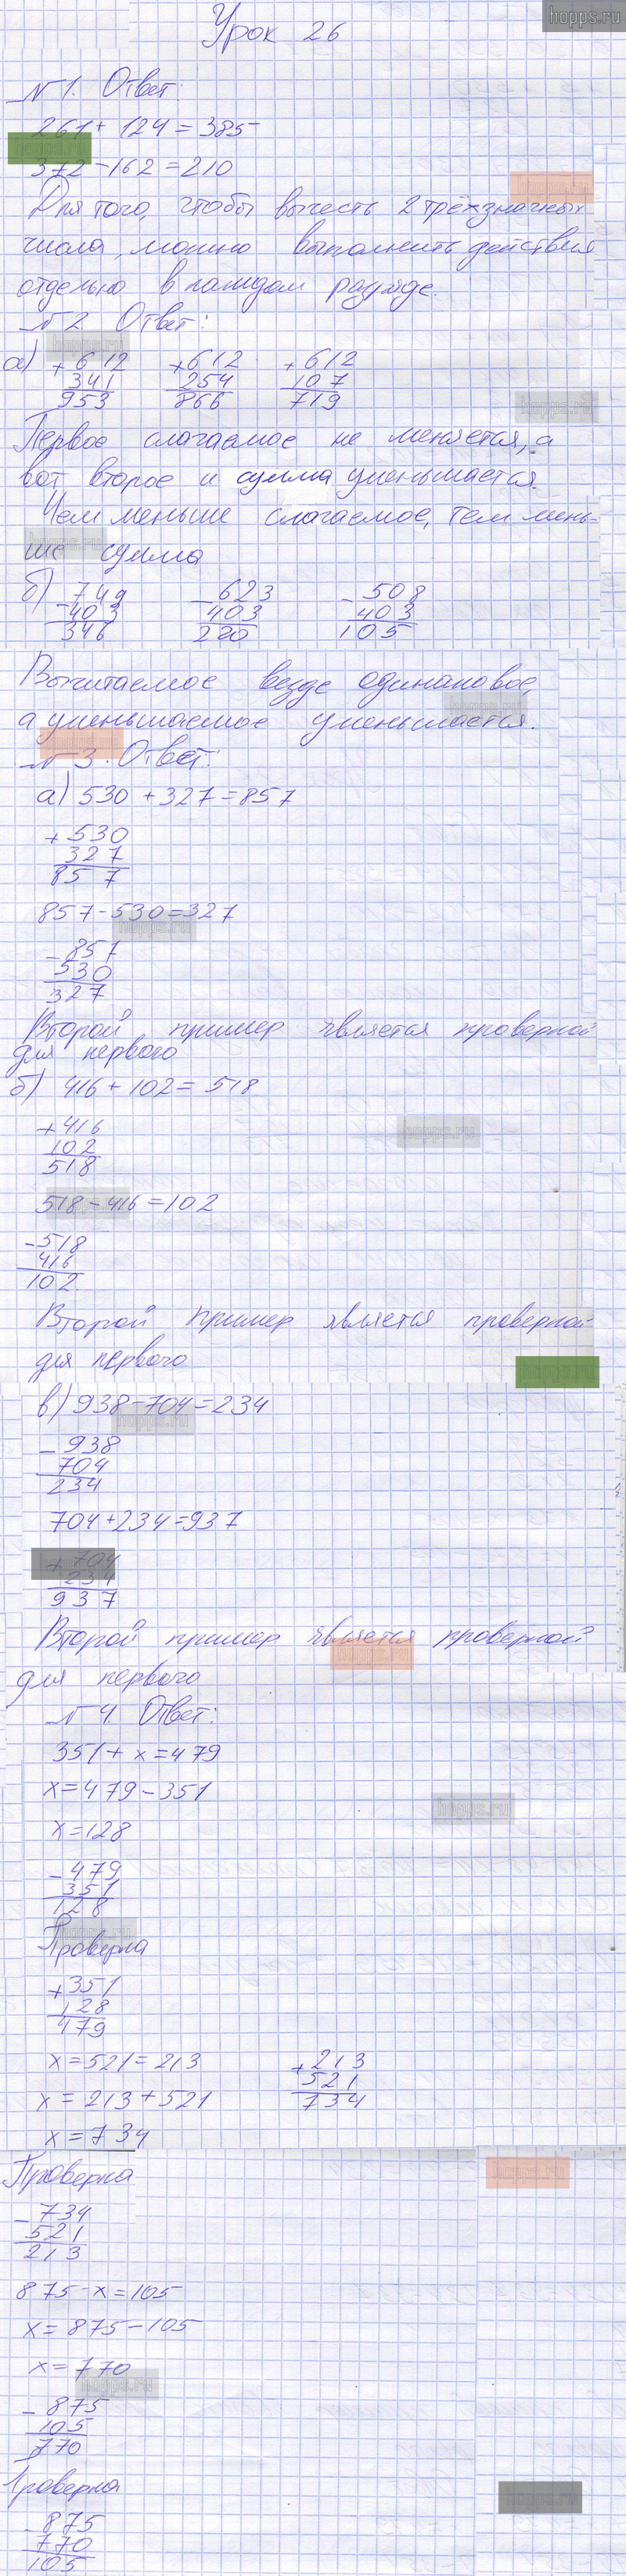 hopps.ru
Урок 26
№ 1. Ответ:
261 + 124 = 385
372 - 162 = 210
Для того, чтобы вычесть 2 трёхзначных
числа, можно выполнить действия
отдельно в каждом разряде.
№ 2 Ответ:
hopps.ru
а) + 612 + 612 + 612
341 254 107
953 866 719
hopps.ru
Первое слагаемое не меняется, а
вот второе и сумма уменьшается.
Чем меньше слагаемое, тем мень-
hopps.ru
ше сумма
б) - 749 - 623 - 508
403 403 403
346 220 105
Вычитаемое везде одинаковое,
hopps.ru
а уменьшаемое уменьшается.
№ 3. Ответ:
а) 530 + 327 = 857
+ 530
327
857
857 - 530 = 327
hopps.ru
- 857
530
327
Второй пример является проверкой
для первого
б) 416 + 102 = 518
+ 416
102
518
hopps.ru
518 - 416 = 102
- 518
416
102
Второй пример является проверкой
для первого
в) 938 - 704 = 234
hopps.ru
- 938
704
234
704 + 234 = 937
+ 704
234
937
Второй пример является проверкой
для первого
№ 4. Ответ:
351 + x = 479
x = 479 - 351
hopps.ru
x = 128
- 479
351
128
hopps.ru
Проверка
+ 351
128
479
x = 521 = 213 + 213
x = 213 + 521 521
x = 734 734
Проверка
- 734
521
213
875 - x = 105
x = 875 - 105
x = 770
hopps.ru
- 875
105
770
Проверка
- 875
770
105